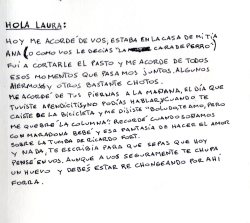 HOLA LAURA:
HOY ME ACORDÉ DE VOS, ESTABA EN LA CASA DE MI TÍA
ANA (O COMO VOS LE DECÍAS "LA CARA DE PERRO")
FUI A CORTARLE EL PASTO Y ME ACORDÉ DE TODOS
ESOS MOMENTOS QUE PASAMOS JUNTOS. ALGUNOS
HERMOSOS Y OTROS BASTANTE CHOTOS.
ME ACORDÉ DE TUS PIERNAS A LA MAÑANA, EL DÍA QUE
TUVISTE APENDICITIS Y NO PODÍAS HABLAR, CUANDO TE
CAISTE DE LA BICICLETA Y ME DIJISTE "BOLUDO TE AMO, PERO
ME QUEBRÉ LA COLUMNA". RECORDÉ CUANDO SOÑAMOS
CON MARADONA BEBÉ Y ESA FANTASÍA DE HACER EL AMOR
SOBRE LA TUMBA DE RICARDO FORT.
Y NADA, TE ESCRIBÍA PARA QUE SEPAS QUE HOY
PENSÉ EN VOS. AUNQUE A VOS SEGURAMENTE TE CHUPA
UN HUEVO Y DEBÉS ESTAR RE CHONGEANDO POR AHÍ
FORRA.